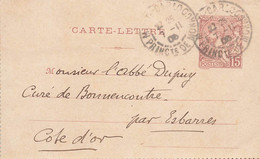 CARTE-LETTRE
Monsieur l'Abbé Dupuy
Curé de Bonnencontre
par Esbarres
Côte d'or
15